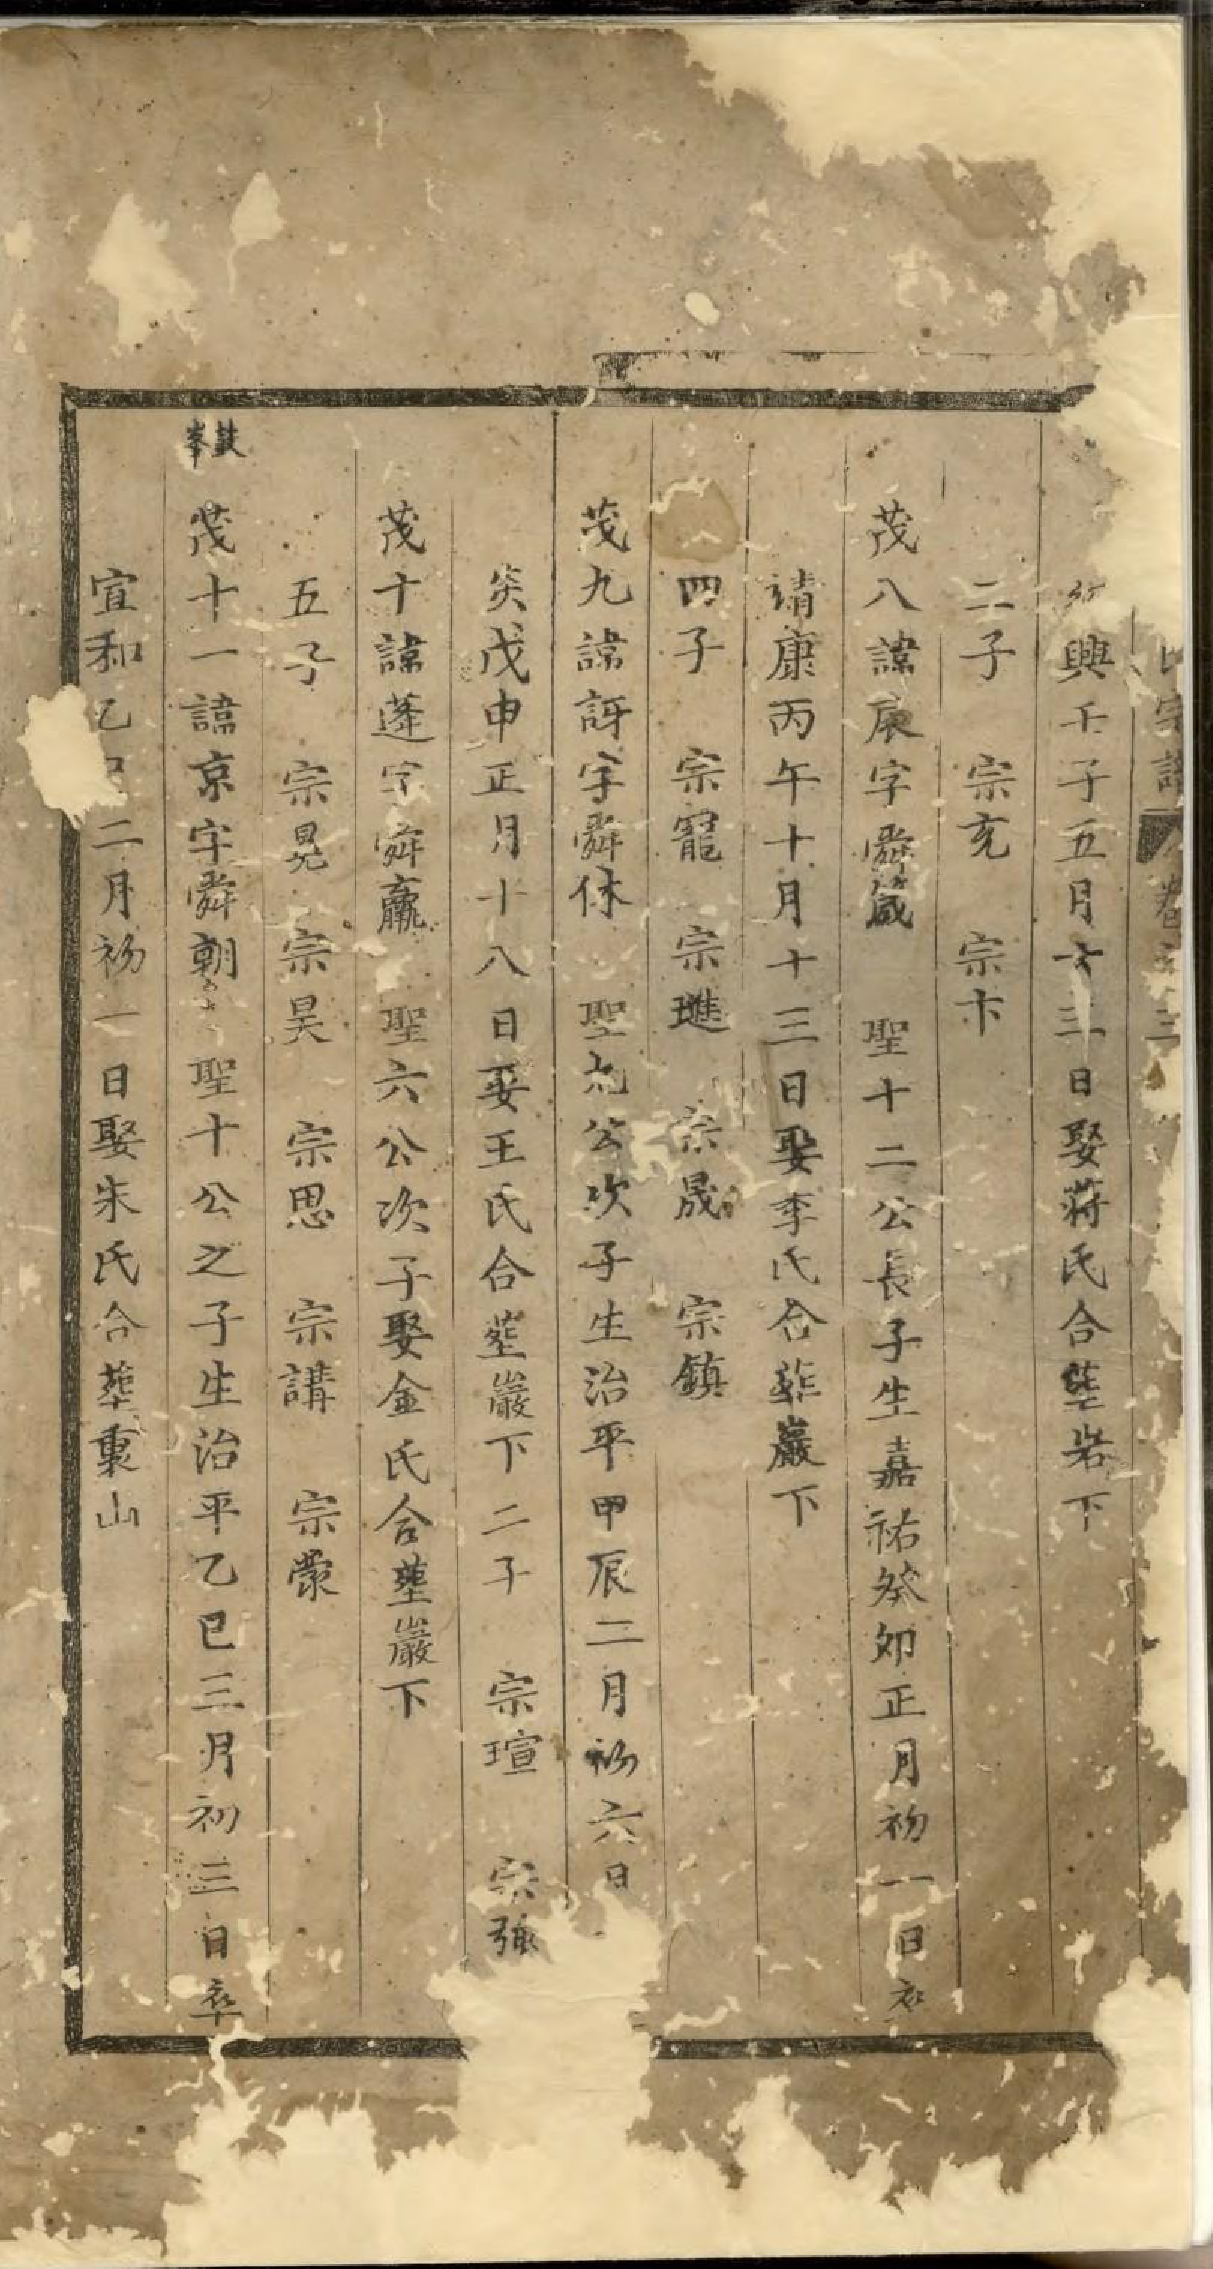 宗譜 卷之三
興壬子五月十三日娶蔣氏合塟岩下
二子 宗充 宗卞
茂八諱扆字舜箴 聖十二公長子生嘉祐癸卯正月初一日卒
靖康丙午十月十三日娶李氏合塟巖下
四子 宗寵 宗璡 宗晟 宗鎮
茂九諱訝字舜休 聖九公次子生治平甲辰二月初六日
炎戊申正月十八日娶王氏合塟巖下二子 宗瑄 宗強
茂十諱蓬字舜 聖六公次子娶金氏合塟巖下
五子 宗晃 宗昊 宗思 宗講 宗蒙
茂十一諱京字舜朝 聖十公之子生治平乙巳三月初三日卒
宣和乙 二月初一日娶朱氏合塟東山